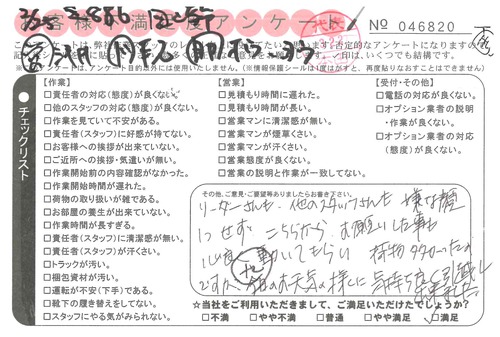 お客様不満足度アンケート
№ 046820
チェックリスト
【作業】
□責任者の対応(態度)が良くない。
□他のスタッフの対応(態度)が良くない。
□作業を見ていて不安がある。
□責任者(スタッフ)に好感が持てない。
□お客様への挨拶が出来ていない。
□ご近所への挨拶・気遣いが無い。
□作業開始前の内容確認がなかった。
□作業開始時間が遅れた。
□荷物の取り扱いが雑である。
□お部屋の養生が出来ていない。
□作業時間が長すぎる。
□責任者(スタッフ)に清潔感が無い。
□責任者(スタッフ)が汗くさい。
□トラックが汚い。
□梱包資材が汚い。
□運転が不安(下手)である。
□靴下の履き替えをしてない。
□スタッフにやる気がみられない。
【営業】
□見積もり時間に遅れた。
□見積もり時間が長い。
□営業マンに清潔感が無い。
□営業マンが煙草くさい。
□営業マンが汗くさい。
□営業態度が良くない。
□営業の説明と作業が一致してない。
【受付・その他】
□電話の対応が良くない。
□オプション業者の説明
・作業が良くない。
□オプション業者の対応
(態度)が良くない。
その他、ご意見・ご要望等ありましたらお書き下さい。
リーダーさんも、他のスタッフさんも 嫌な顔
1つせず こちらから、お願いした事も
心良く 動いてもらい 荷物 多かったの
ですが 今日のお天気の様に 気持ち良く 引越し
出来ました
☆当社をご利用いただきまして、ご満足いただけたでしょうか?
□不満 □やや不満 □普通 □やや満足 □満足